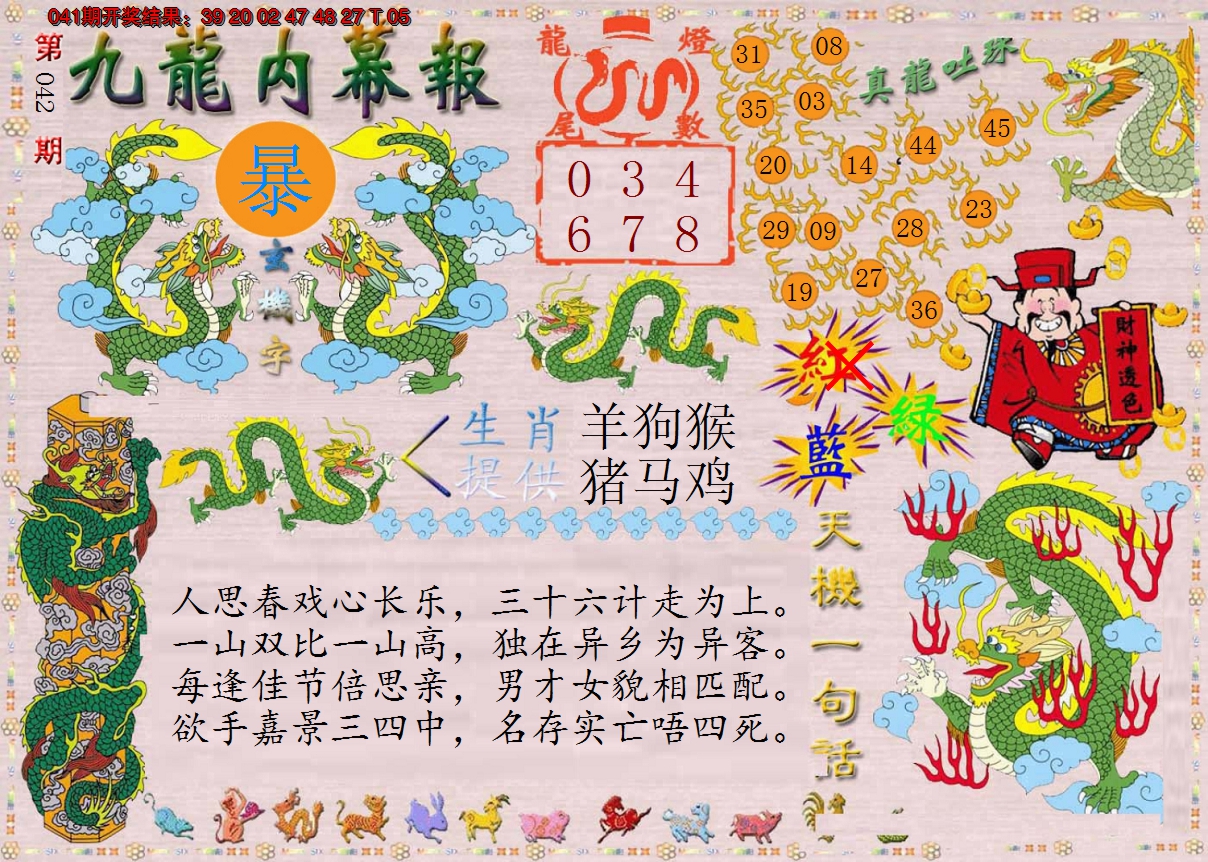 041期开奖结果：39 20 02 47 48 27 T 05
第042期
九龍内幕報
暴
玄機字
龍燈尾數
0 3 4
6 7 8
真龍吐珠
31 08
35 03
45
44
20 14
23
29 09 28
27
19 36
財神透色
紅
绿
藍
生肖 羊狗猴
提供 猪马鸡
天機一句话
人思春戏心长乐，三十六计走为上。
一山双比一山高，独在异乡为异客。
每逢佳节倍思亲，男才女貌相匹配。
欲手嘉景三四中，名存实亡唔四死。